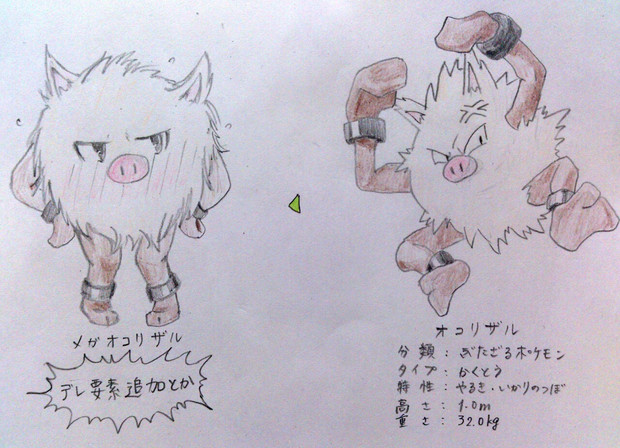 メガオコリザル
デレ要素追加とか
オコリザル
分類：ぶたざるポケモン
タイプ：かくとう
特性：やるき・いかりのつぼ
高さ：1.0m
重さ：32.0kg